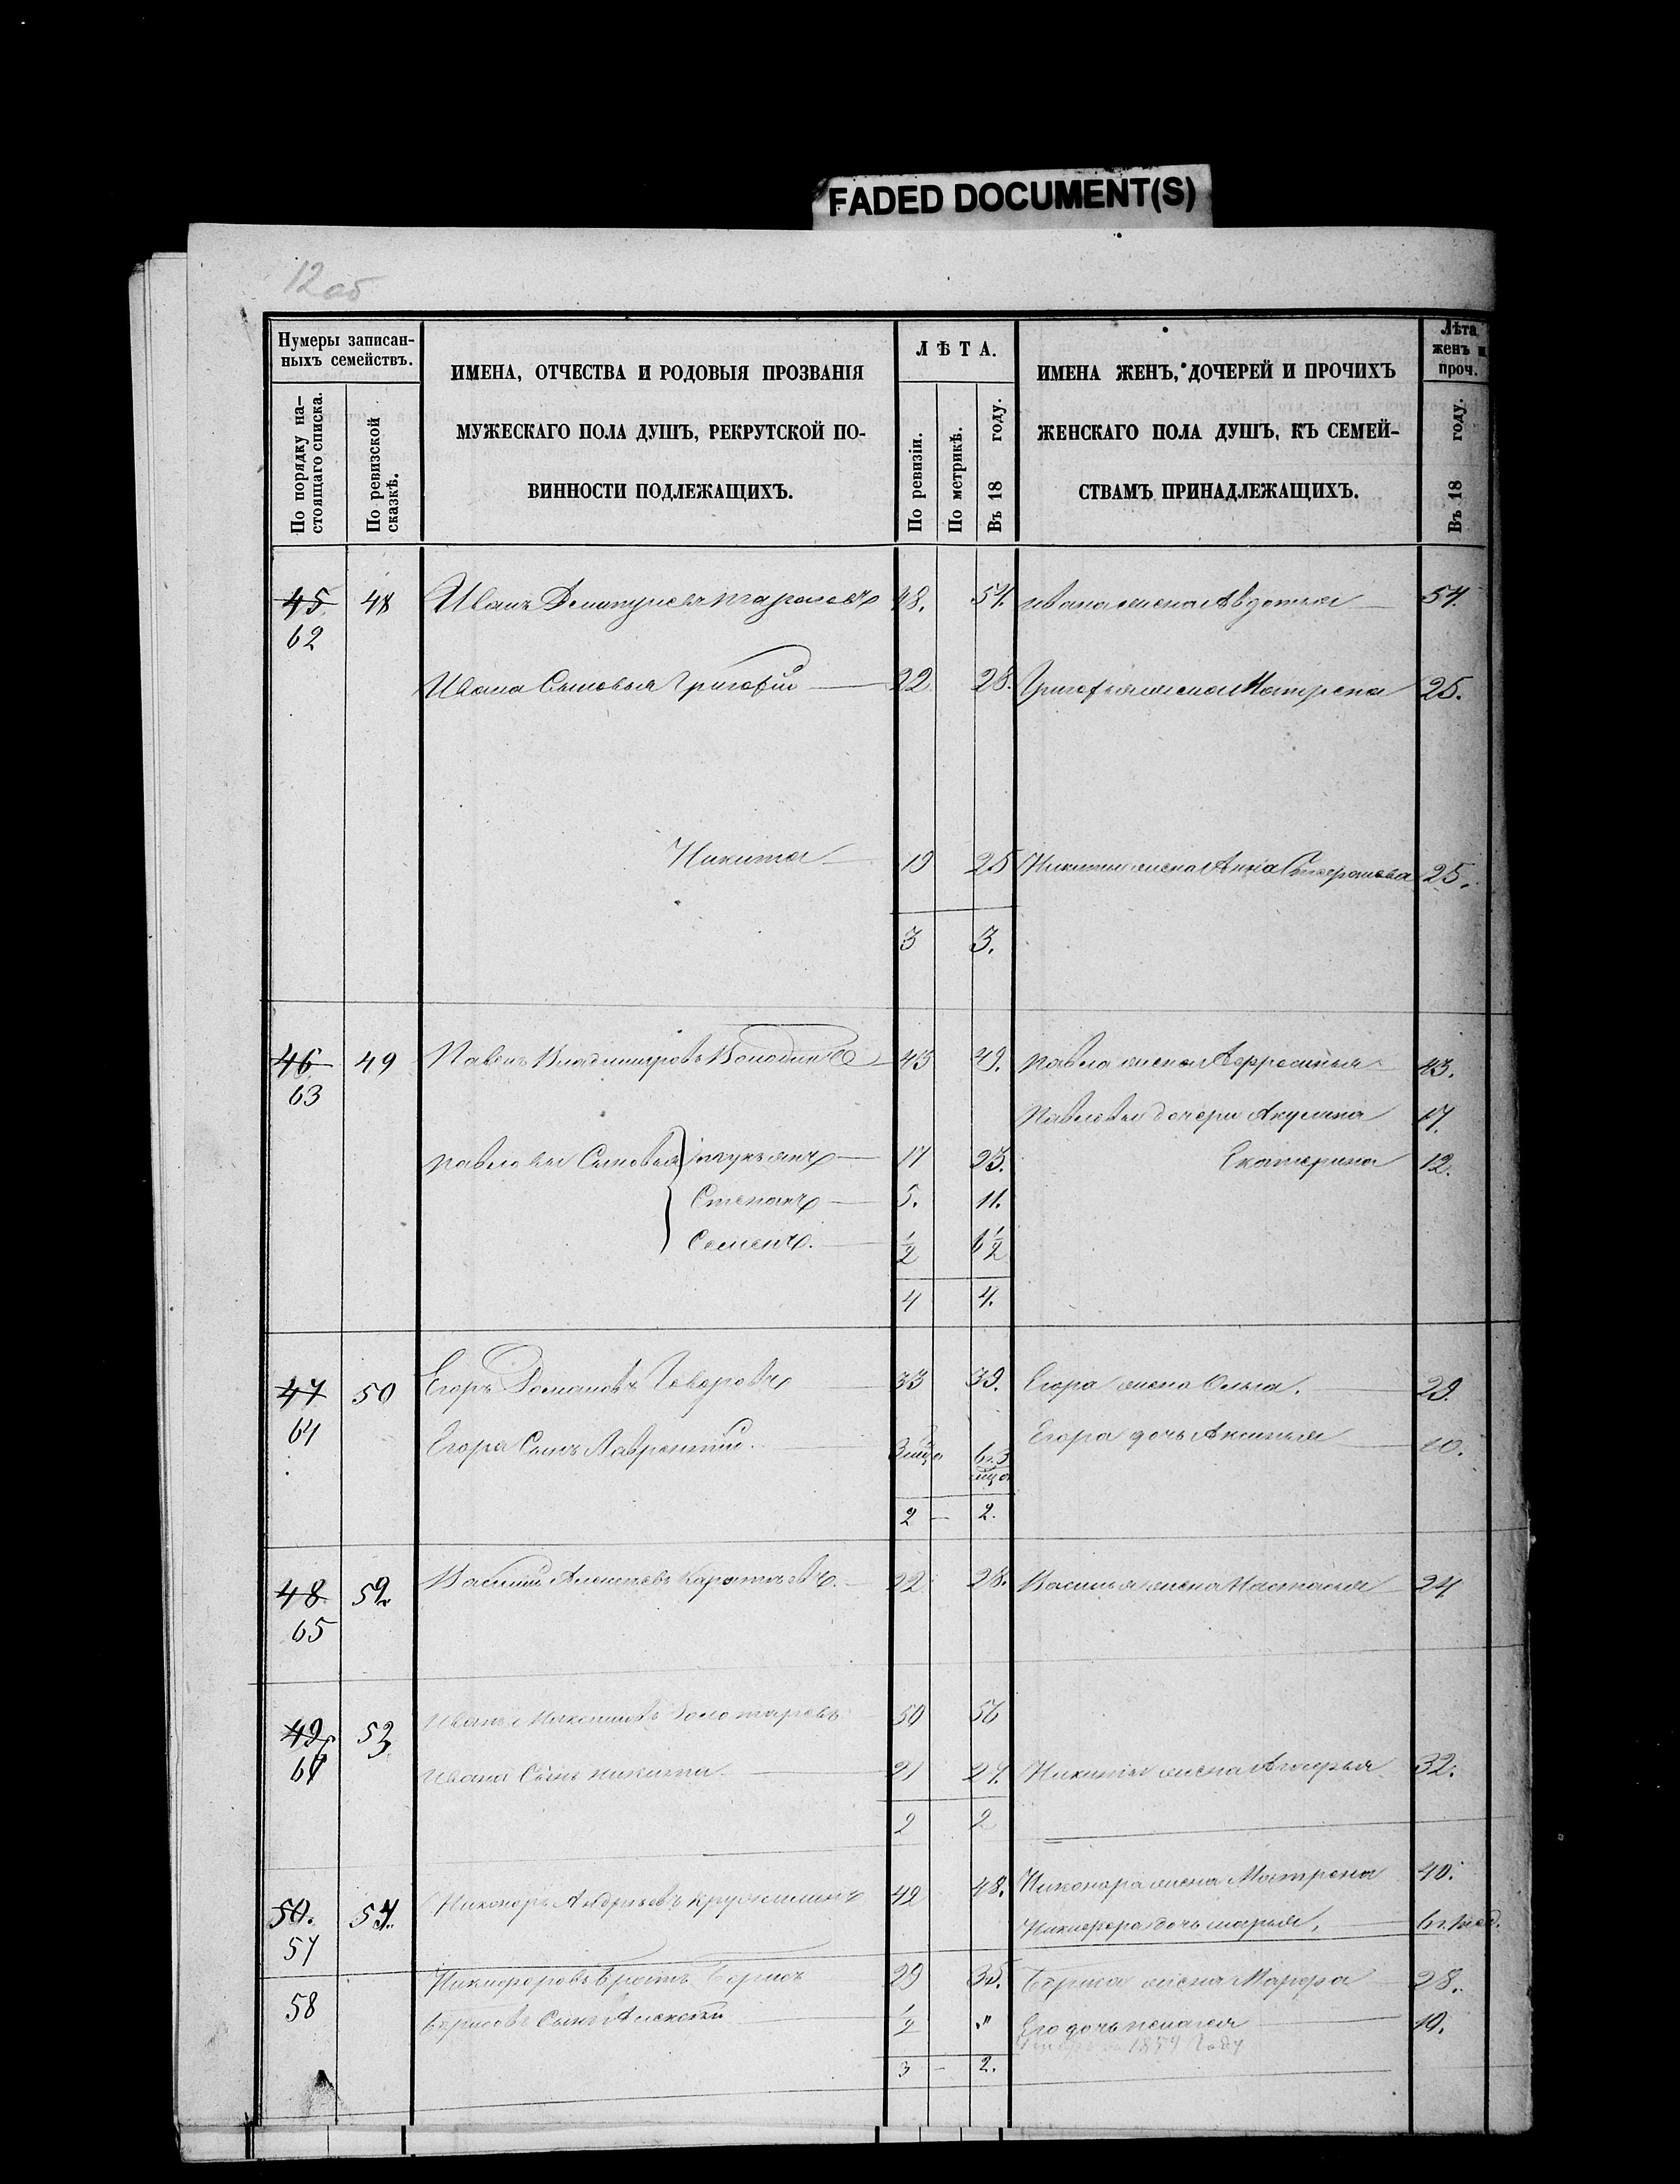 FADED DOCUMENT(S)
12 об
Нумеры записан-
ныхъ семействъ.
По порядку на-
стоящаго списка.
По ревизской
сказкѣ.
ИМЕНА, ОТЧЕСТВА И РОДОВЫЯ ПРОЗВАНІЯ
МУЖЕСКАГО ПОЛА ДУШЪ, РЕКРУТСКОЙ ПО-
ВИННОСТИ ПОДЛЕЖАЩИХЪ.
ЛѢТА.
По ревизіи.
По метрикѣ.
Въ 18 году.
ИМЕНА ЖЕНЪ, ДОЧЕРЕЙ И ПРОЧИХЪ
ЖЕНСКАГО ПОЛА ДУШЪ, КЪ СЕМЕЙ-
СТВАМЪ ПРИНАДЛЕЖАЩИХЪ.
Лѣта
женъ и
проч.
Въ 18 году.
45 48 Иванъ 48. 54. ивана жена Авдотья 54.
62
Ивана Сыновья Григорій 22 28. Григорья жена Матрена 25.
Никита 19 25 Никиты жена Анна 25.
3 3.
46 49 Павелъ Владимировъ 43 49. павла жена 43.
63
Павловы дочери Акулина 17.
павловы Сыновья лукьянъ 17 23. Екатерина 12.
Степанъ 5. 11.
Семенъ. 1/2 6 1/2
4 4.
47 50 Егоръ Романовъ 33 39. Егора жена Ольга. 29.
64
Егора Сынъ Лаврентий. 3 мца 6 г. 3 мца Егора дочь Аксинья 10.
2 — 2.
48 52 Василий Алексѣевъ 22 28. Василья жена Настасья 24
65
49 53 Иванъ 50 56
Ивана Сынъ никита 21 27. Никиты жена 32.
2 2
50. 54. Никоноръ Андрѣевъ 42 48. Никонора жена Матрена 40.
57
Никифора дочь марья,
Никифоровъ братъ Борисъ 29 35. Бориса жена Марфа 28.
58
Борисовъ Сынъ Алексѣй 1/2 " Его дочь пелагея 10.
1854 Году
3 — 2.